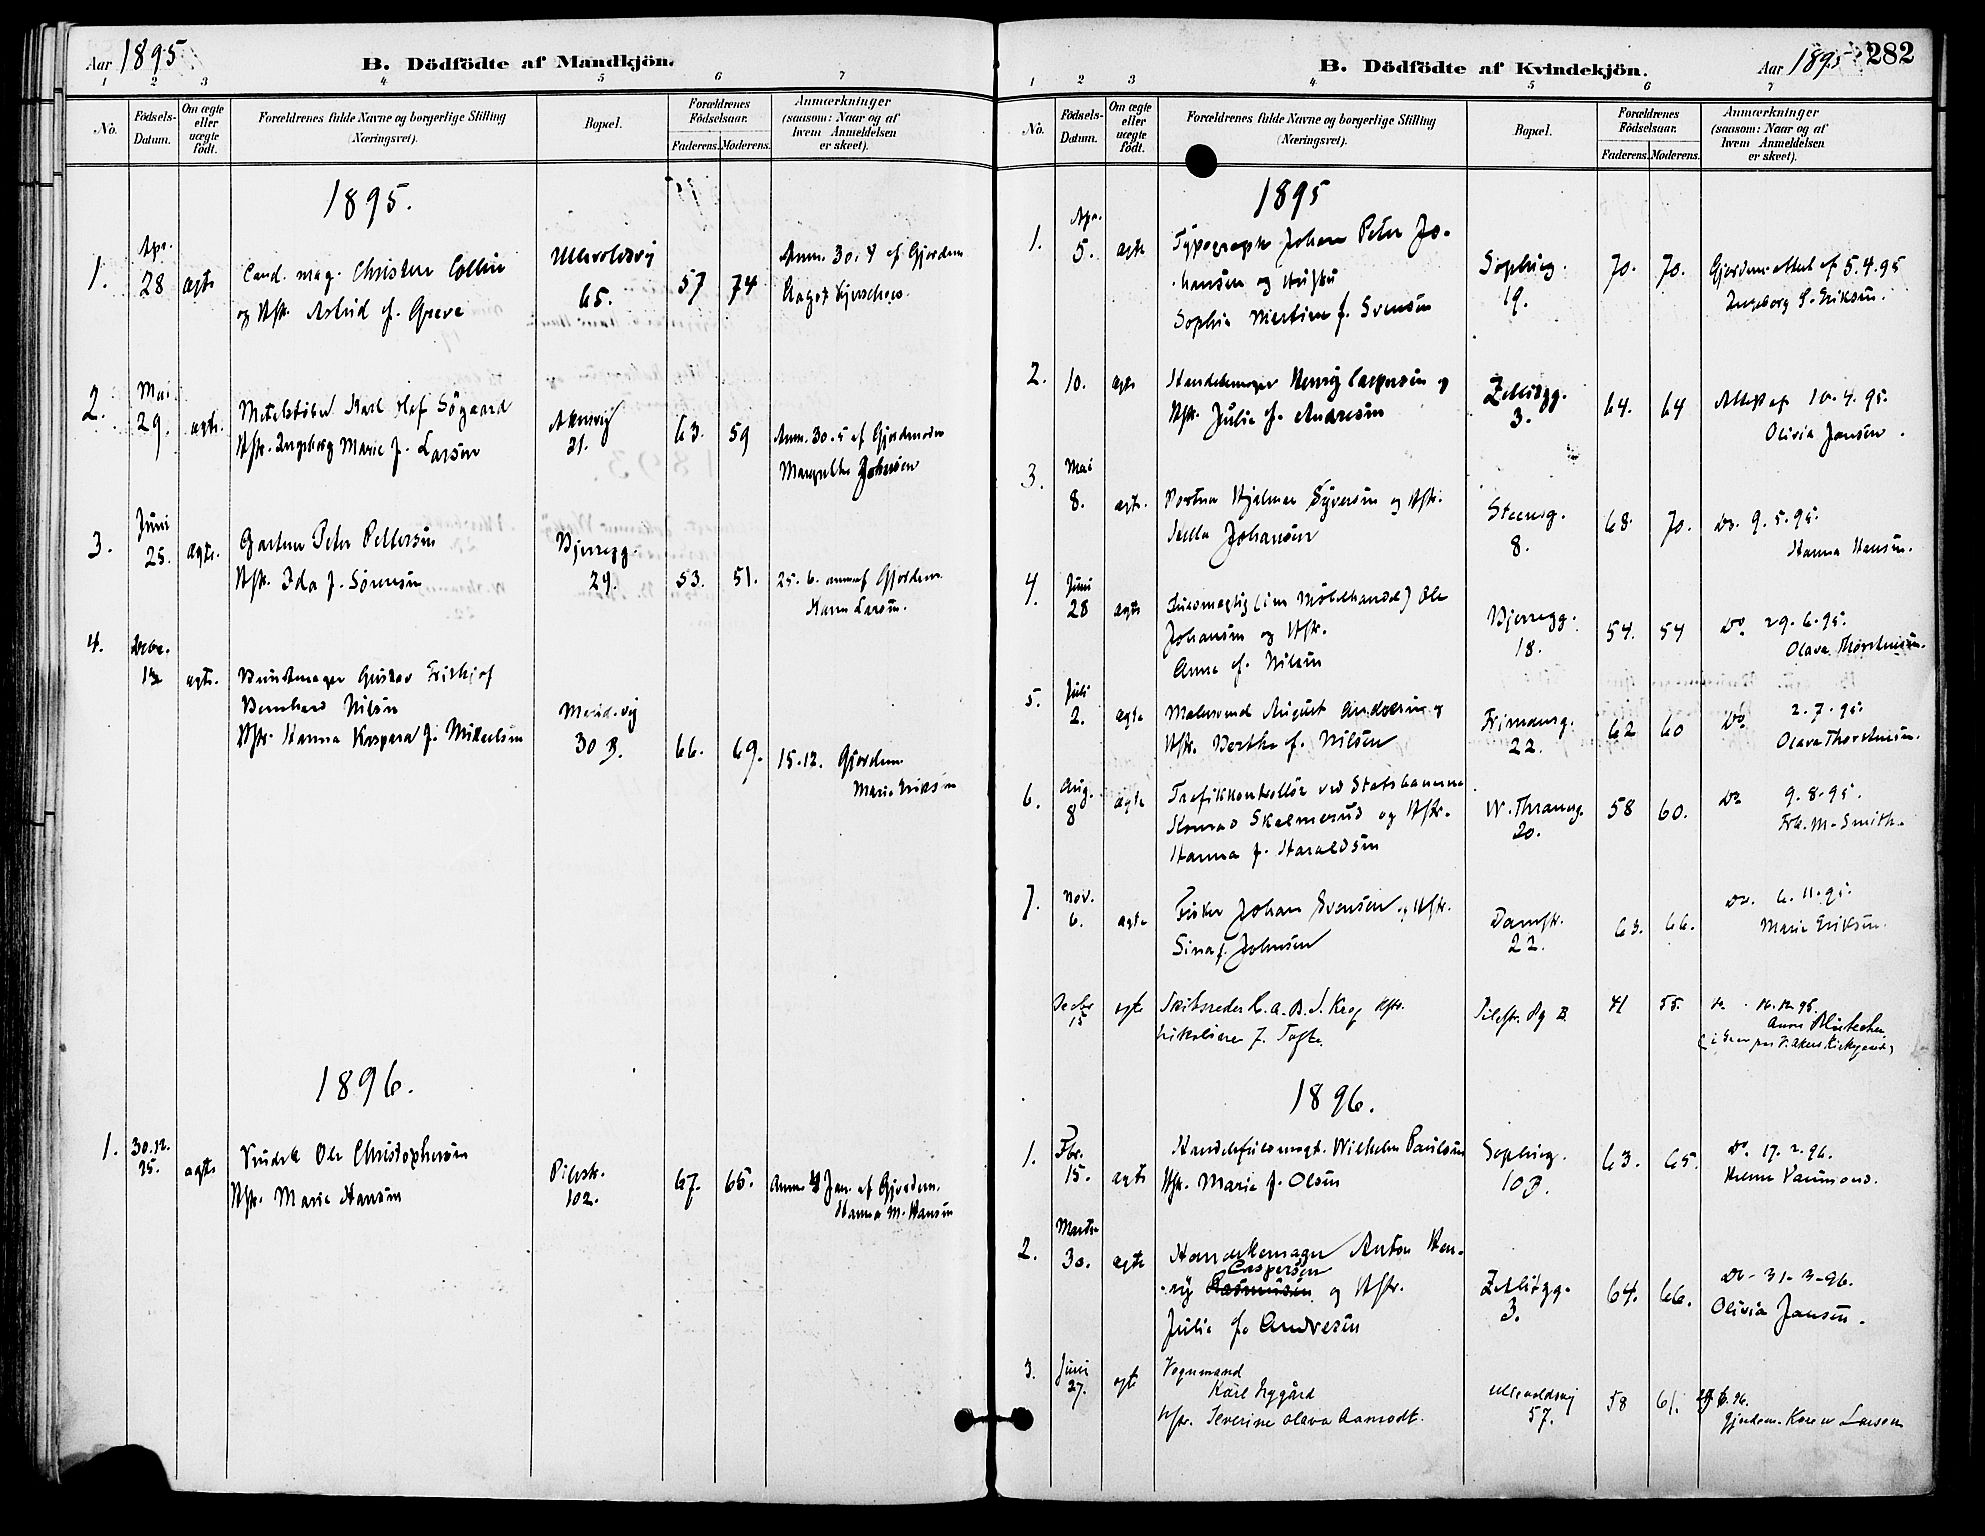 Aar 1895
B. Dödfödte af Mandkjön.
1 2 3 4 5 6 7
No.
Födsels-
Datum.
Om ægte
eller
uægte
födt.
Forældrenes fulde Navne og borgerlige Stilling
(Næringsvei).
Bopæl.
Forældrenes
Födselsaar.
Faderens. Moderens.
Anmærkninger
(saasom: Naar og af
hvem Anmeldelsen
er skeet).
1895.
1.
Apr.
28
ægte
Cand. mag. Christen Collin
og Hstr. Astrid f. Greve
Ullevoldsvj
65.
57 74
Anm. 30.4 af Gjordem
2.
Mai
29.
ægte.
Karl Olaf Sögaard
Hstr. Ingeborg Marie f. Larsen
Akersvj
21.
63. 59
Anm. 30.5 af Gjordemoder
Margrethe Johnsen
3.
Juni
25.
ægte.
Gartner Peter Pettersen
Hstr. Ida f. Sörensen
Bjerregg.
29.
53. 51.
25. 6. anm af Gjordem.
Karen Larsen.
4.
Decbr.
ægte.
Buntmager Gustav Frithjof
Bernhard Nilsen
Hstr. Hanna Kaspara f. Mikelsen
Marid.vj
30 B.
66. 69.
15.12. Gjordem
Marie Eriksen
1896.
1.
30.12.
95.
ægte
Ole Christophersen
Hstr. Marie Hansen
Pilestr.
102.
67. 65.
Anm. 4 Jan. af Gjordem.
Hanna M. Hansen
B. Dödfödte af Kvindekjön.
Aar 1895
282
1 2 3 4 5 6 7
No.
Födsels-
Datum.
Om ægte
eller
uægte
födt.
Forældrenes fulde Navne og borgerlige Stilling
(Næringsvei).
Bopæl.
Forældrenes
Födselsaar.
Faderens. Moderens.
Anmærkninger
(saasom: Naar og af
hvem Anmeldelsen
er skeet).
1895
1.
Apr.
5.
ægte
Typograph Johan Peter Jo-
hansen og Hustru
Sophie Martine f. Svensen
Sophieg.
19.
70. 70.
Gjordem. attest af 5.4.95
Ingeborg S. Eriksen.
2.
10.
ægte
Handskemager Henrij Caspersen og
Hstr. Julie f. Andresen
Zetlitzgg.
3.
64. 64
Attest af 10.4.95.
Olivia Jansen.
3.
Mai
8.
ægte.
Hjalmar Syversen og Hstr.
Johansen
Steensg.
8.
68. 70.
Do. 9.5.95.
Hanna Hansen.
4.
Juni
28
ægte
Fuldmægtig (i en Möbelhandel) Ole
Johansen og Hstr.
Anne f. Nilsen
Bjerregg.
18.
54. 54
Do 29.6.95.
Olava Thorstensen.
5.
Juli
2.
ægte
Malersvend August Andersen og
Hstr. Berthe f. Nilsen
Frimansg.
22.
62 60
Do 2.7.95.
Olava Thorstensen.
6.
Aug.
8
ægte
Trafikkontrollör ved Statsbanerne
Konrad Skalmerud og Hstr.
Hanna f. Haraldsen
W. Thranesg.
20.
58 60.
Do 9.8.95.
Frk. M. Smith.
7.
Nov.
6.
ægte
Fisker Johan Svensen og Hstr.
Sina f. Johnsen
Damstr.
22.
63. 66.
Do. 6.11.95.
Marie Eriksen.
Decbr
15
ægte
Skibsreder C. A. B. S. Krog Hstr.
Nikoline f. Tofte.
Pilestr. B
41 55.
Do. 16.12.95.
Anne
1896.
1.
Fbr.
15.
ægte
Handelsfuldmægt. Wilhelm Paulsen
Hstr. Marie f. Olsen
Sophieg.
10 B.
63. 65.
Do 17.2.96.
2.
Marts
30.
ægte
Handskemager Anton Hen-
Caspersen
rij Rasmussen og Hstr.
Julie f. Andresen
Zetlitzgg.
3.
64. 66.
Do. 31.3.96.
Olivia Jansen.
3.
Juni
27.
ægte
Vognmand
Karl Nygård
Hstr. Severine Olava Aamodt.
Ullevoldsvj
57.
58 61.
29.6.96.
Gjordem. Karen Larsen